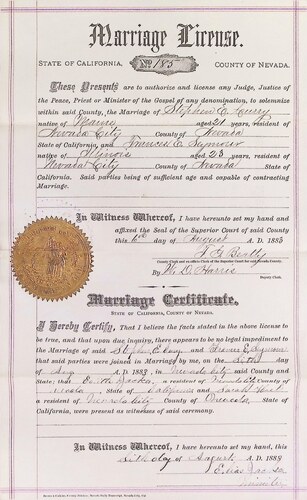 Marriage License.
STATE OF CALIFORNIA, No. 185 COUNTY OF NEVADA.
These Presents are to authorize and license any Judge, Justice
of the Peace, Priest or Minister of the Gospel of any denomination, to solemnize
within said County, the Marriage of Stephen E
native of Maine aged 21 years, resident of
Nevada City County of Nevada
State of California, and Frances E Seymour
native of Illinois aged 23 years, resident of
Nevada City County of Nevada State of
California. Said parties being of sufficient age and capable of contracting
Marriage.
In Witness Whereof, I have hereunto set my hand and
affixed the Seal of the Superior Court of said County
this 6th day of August A. D. 1885
County Clerk and ex-officio Clerk of the Superior Court for said Nevada County.
By W. D. Harris
Deputy Clerk.
Marriage Certificate.
STATE OF CALIFORNIA, COUNTY OF NEVADA.
I Hereby Certify, That I believe the facts stated in the above license
to be true, and that upon due inquiry, there appears to be no legal impediment
to the Marriage of said Stephen E and Seymour
that said parties were joined in Marriage by me, on the
of Aug A. D. 1885, in Nevada City said County and
State; that a resident of County of
State of California and Sarah
a resident of Nevada City County of State of
California, were present as witnesses of said ceremony.
In Witness Whereof, I have hereunto set my hand, this
day of August A. D. 188
Minister